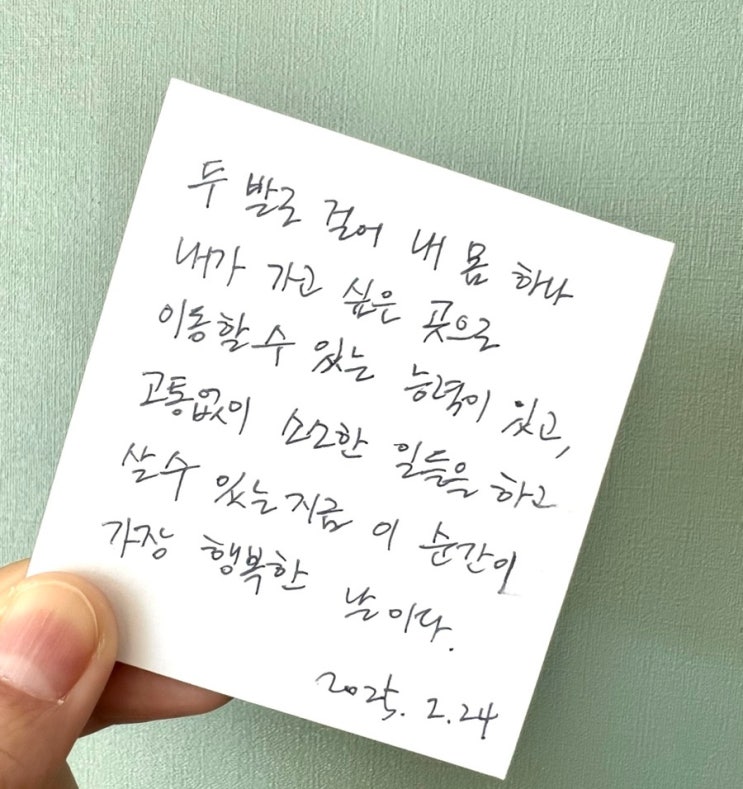 두 발로 걸어 내 몸 하나
내가 가고 싶은 곳으로
이동할 수 있는 능력이 있고,
고통없이 소소한 일들을 하고
살 수 있는 지금 이 순간이
가장 행복한 날이다.
2025. 2. 24